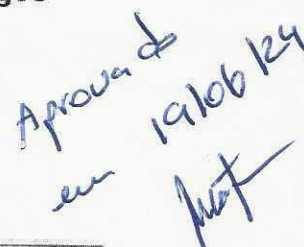 Aprovado
em 19/06/24